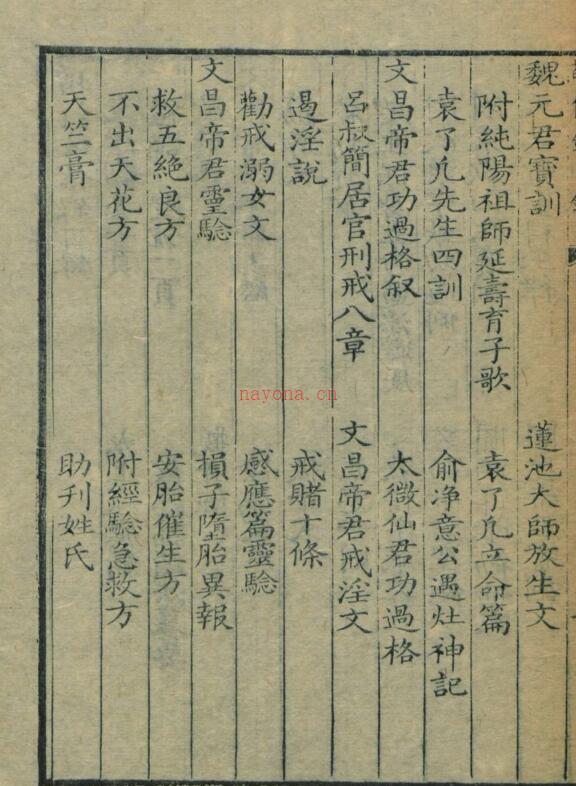 魏元君寶訓 蓮池大師放生文
附純陽祖師延壽育子歌 袁了凡立命篇
袁了凡先生四訓 俞净意公遇灶神記
文昌帝君功過格叙 太微仙君功過格
呂叔簡居官刑戒八章 文昌帝君戒淫文
遏淫說 戒賭十條
勸戒溺女文 感應篇靈驗
文昌帝君靈驗 損子墮胎異報
救五絶良方 安胎催生方
不出天花方 附經驗急救方
天竺膏 助刋姓氏
nayona.cn